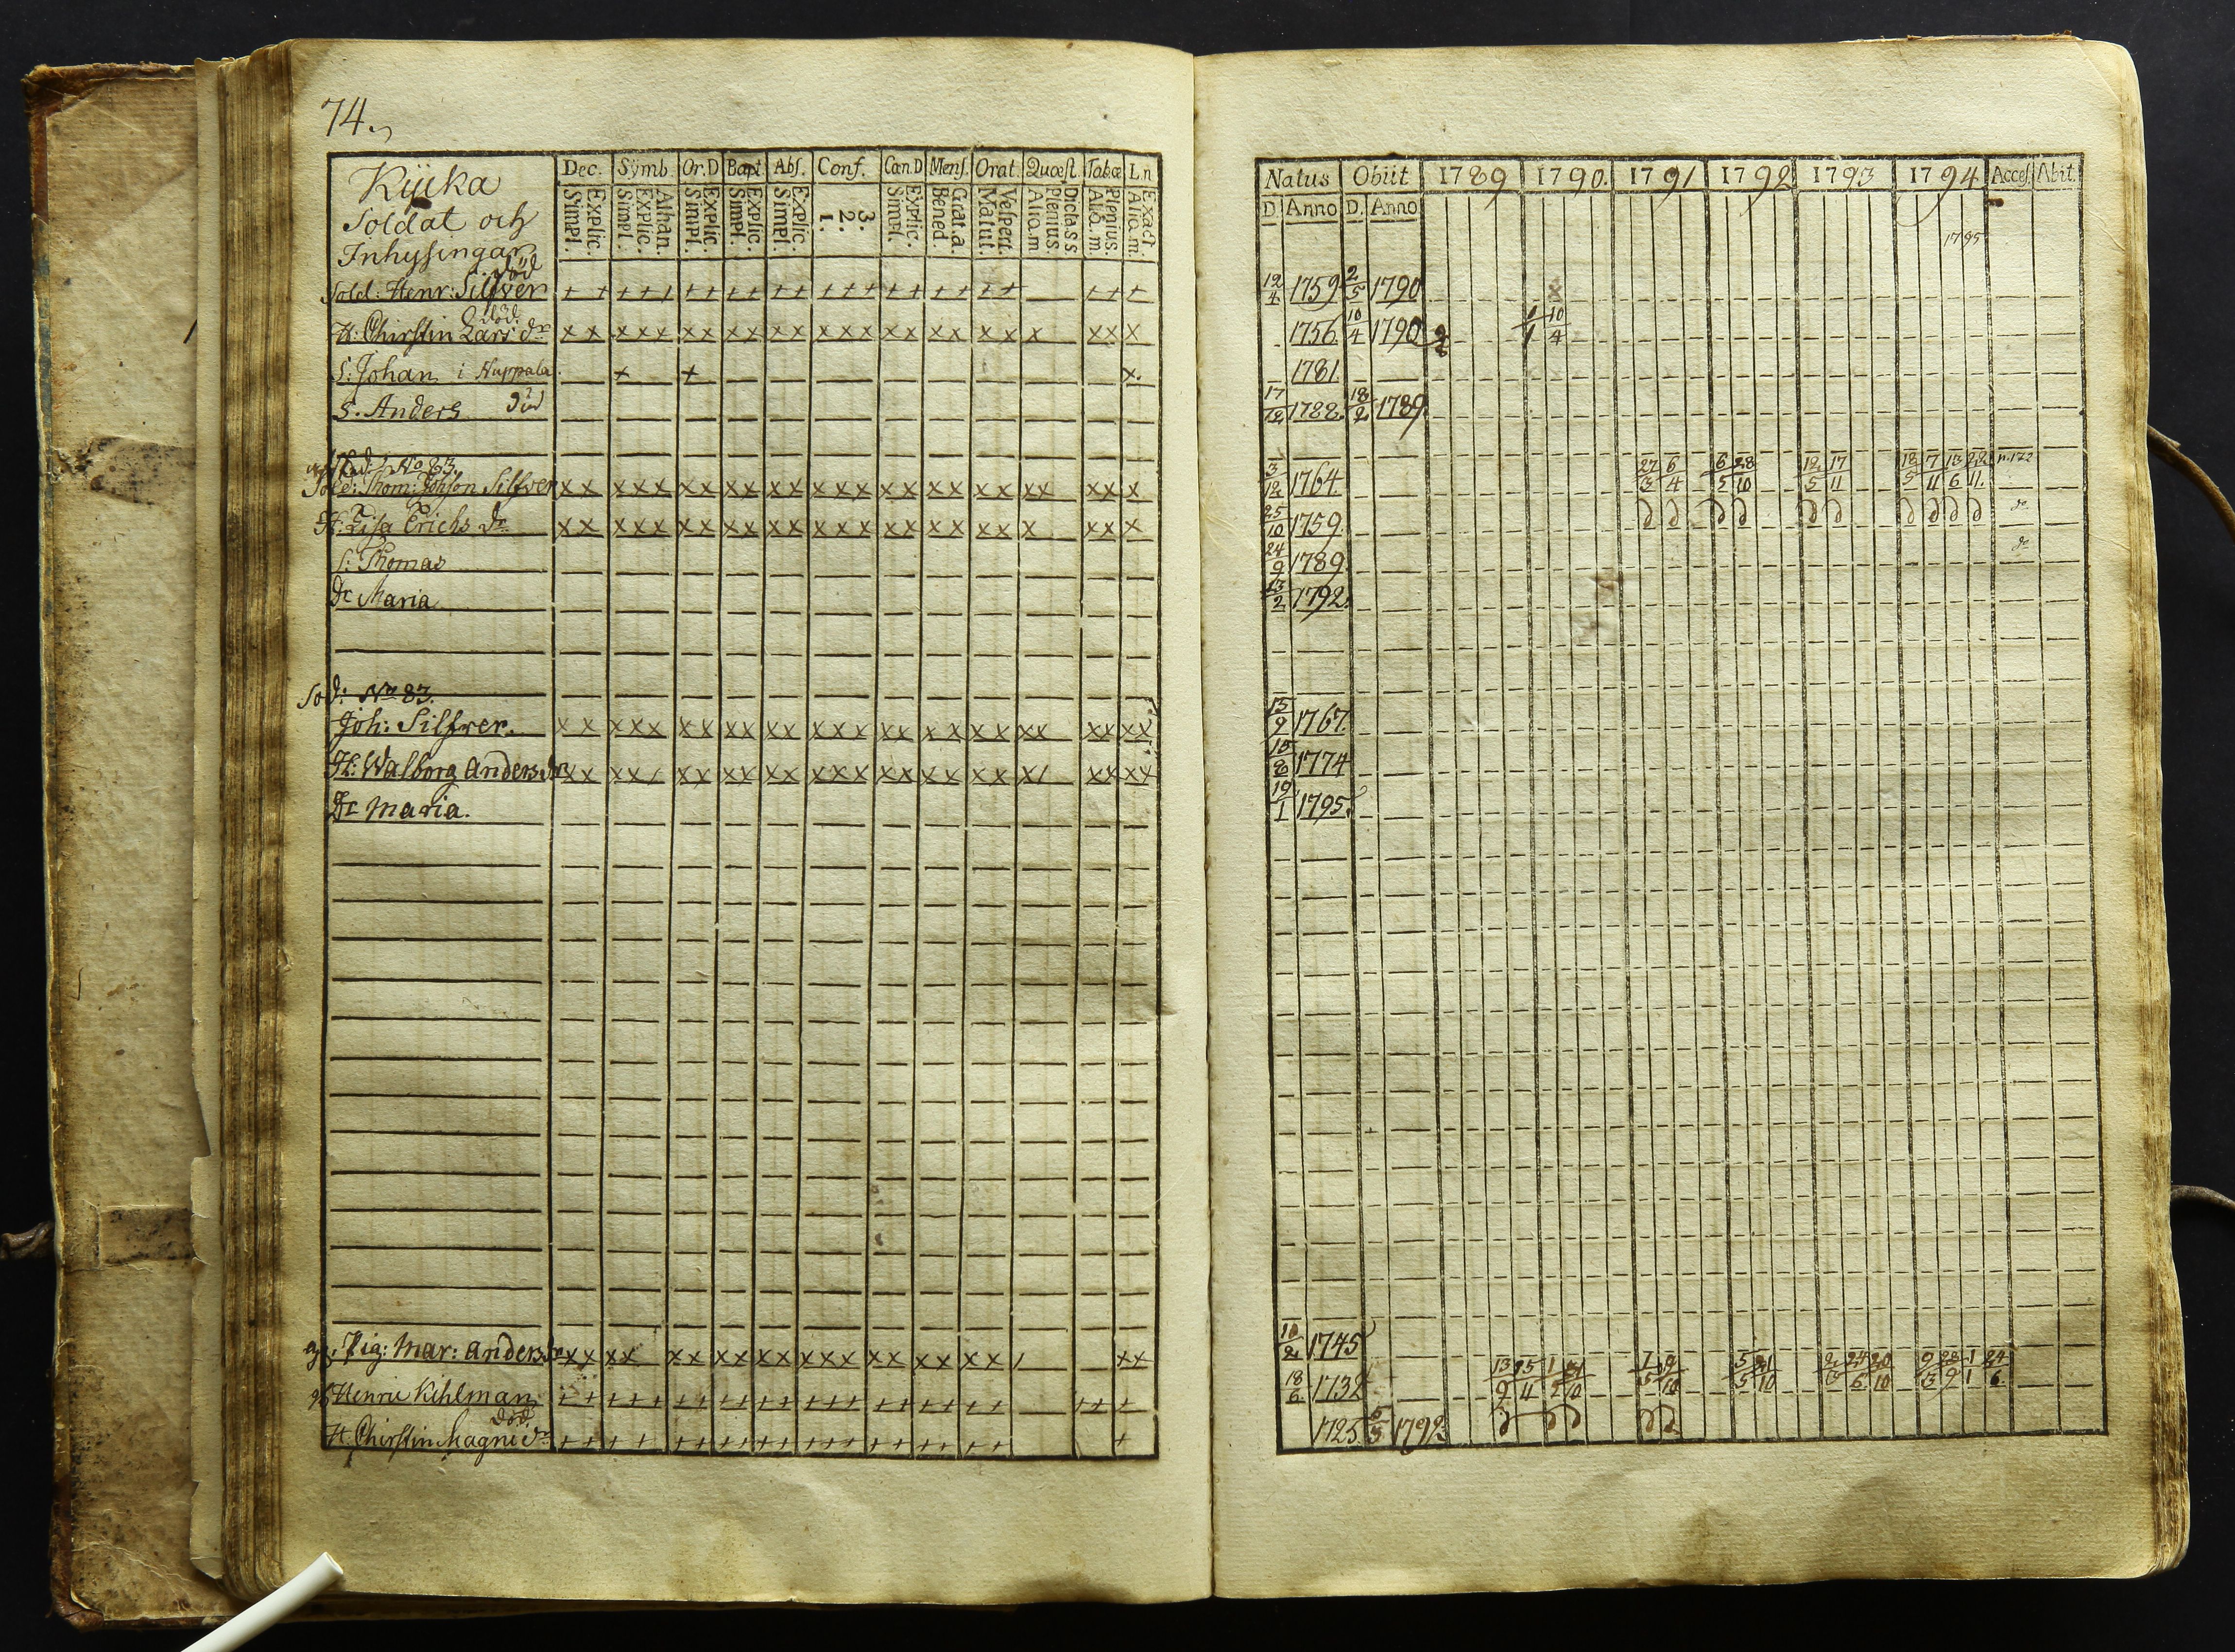 74.
Kÿcka
Soldat och
Inhysingar
Dec. Sÿmb. Or.D Bapt. Abs. Conf. Can.D Mens. Orat. Quæst. Tab.œ L.n
Explic. Simpl. Athan. Explic. Simpl. Explic. Simpl. Explic. Simpl. Explic. Simpl. 3. 2. 1. Explic. Simpl. Grat.a. Bened. Vespert. Matut. Dicta.s.s. Plenius. Aliq.m Plenius. Aliq.m Exact. Aliq.m
död
Sold: Henr: Silfver + + + + + + + + + + + + + + + + + + + + + + +
död.
H: Chirstin Lars dr x x x x x x x x x x x x x x x x x x x x x x x
S: Johan i Huppala + + x.
S. Anders död
Sold: No 83.
Sold: Thom: Johson Silfver x x x x x x x x x x x x x x x x x x x x x x x x
H: Lisa Erichs dr x x x x x x x x x x x x x x x x x x x x x x x
S: Thomas
Dr Maria
Sod: No 83.
Joh: Silfver. x x x x x x x x x x x x x x x x x x x x x x x x x
H: Walborg Anders dr x x x x / x x x x x x x x x x x x x x x x / x x x x
Dr Maria.
Pig: Mar: Anders dr x x x x x x x x x x x x x x x x x x x / x x
Henric Kihlman + + + + + + + + + + + + + + + + + + + + + +
död.
H Chirstin Magni dr + + + + + + + + + + + + + + + + + + + +
Natus Obiit 1789 1790. 1791 1792 1793 1794 Acces. Abit.
D. Anno D. Anno
1795
12/4 1759 2/5 1790
1756 10/4 1790 1/1 10/4
1781.
17/12 1788. 18/2 1789.
3/12 1764. 27/3 6/4 6/5 28/10 12/5 17/11 18/5 7/11 13/6 22/11. n. 172
25/10 1759. do
24/9 1789. do
13/2 1792.
15/9 1767.
18/8 1774
19/1 1795.
10/2 1745
18/6 1732 13/9 25/4 1/2 5/5 21/10
1725. 5/5 1792